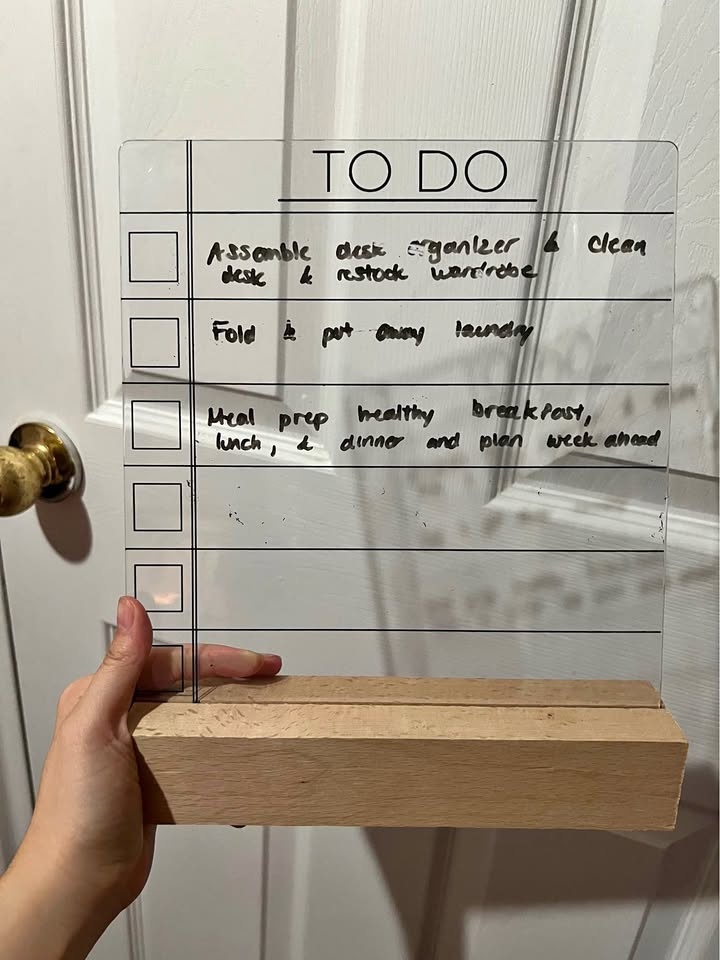 TO DO
Assemble desk organizer & clean
desk & restock wardrobe
Fold & put away laundry
Meal prep healthy breakfast,
lunch, & dinner and plan week ahead